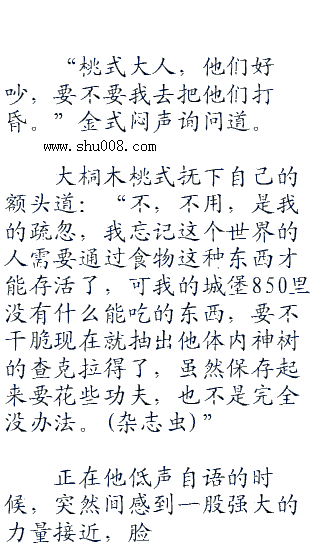 “桃式大人，他们好
吵，要不要我去把他们打
昏。”金式闷声询问道。
www.shu008.com
大桐木桃式抚下自己的
额头道：“不，不用，是我
的疏忽，我忘记这个世界的
人需要通过食物这种东西才
能存活了，可我的城堡850里
没有什么能吃的东西，要不
干脆现在就抽出他体内神树
的查克拉得了，虽然保存起
来要花些功夫，也不是完全
没办法。(杂志虫)”
正在他低声自语的时
候，突然间感到一股强大的
力量接近，脸